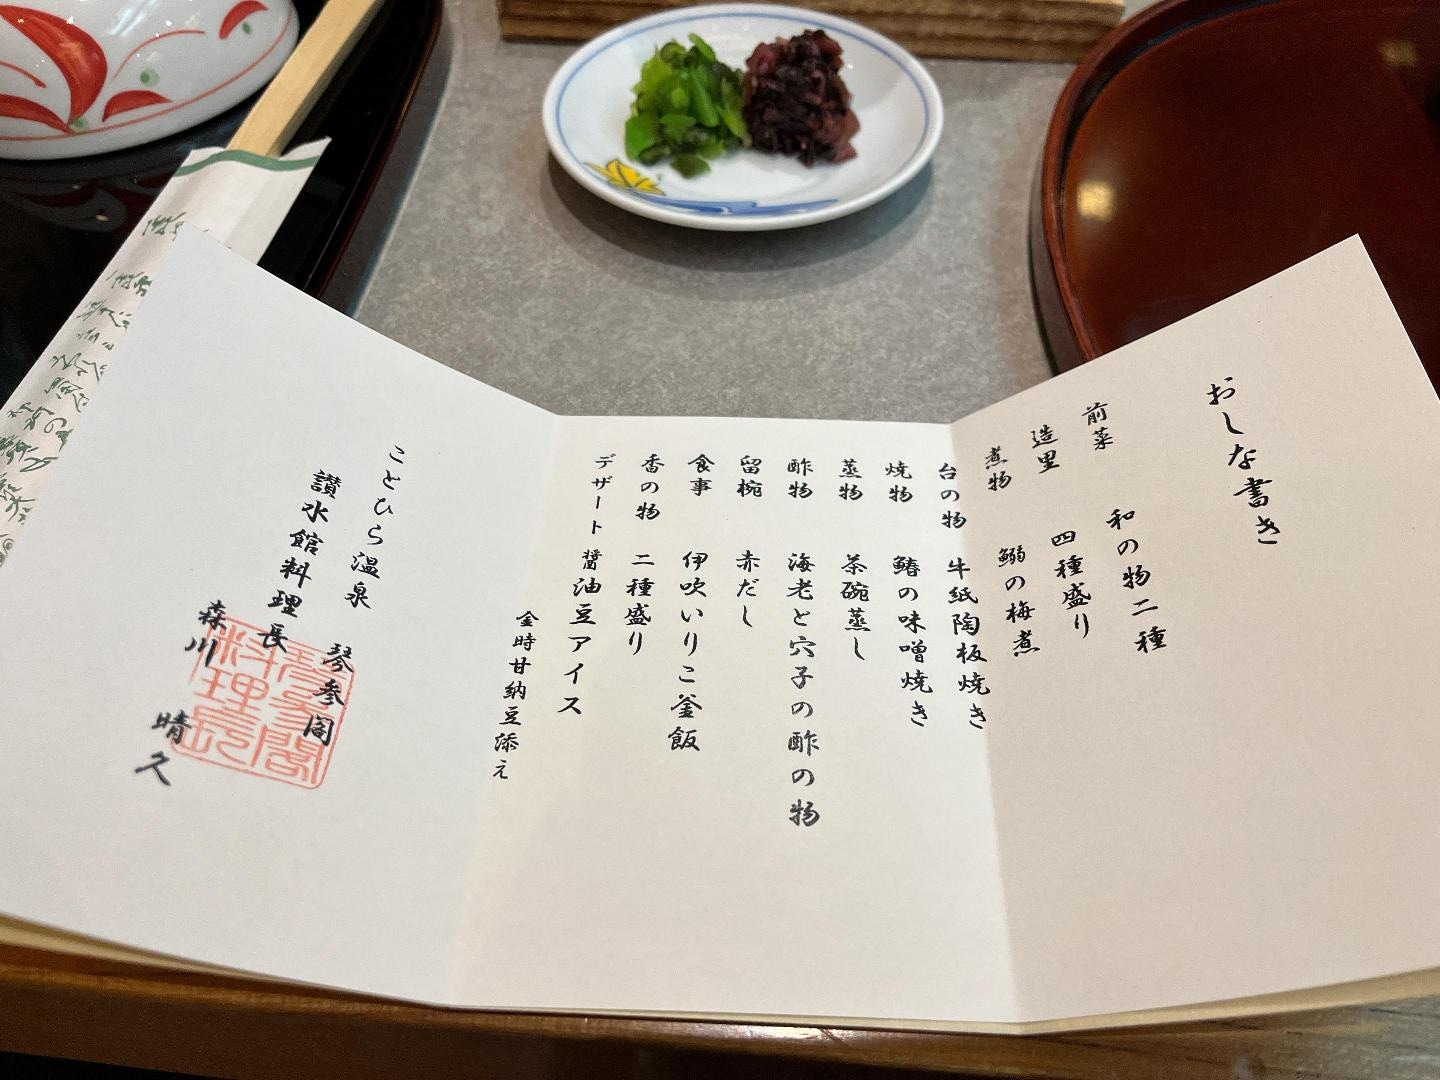 おしな書き
前菜 和の物二種
造里 四種盛り
煮物 鰯の梅煮
台の物 牛紙陶板焼き
焼物 鰆の味噌焼き
蒸物 茶碗蒸し
酢物 海老と穴子の酢の物
留椀 赤だし
食事 伊吹いりこ釜飯
香の物 二種盛り
デザート 醤油豆アイス
金時甘納豆添え
ことひら温泉 琴参閣
讃水館料理長
森川 晴久
琴参閣
料理長